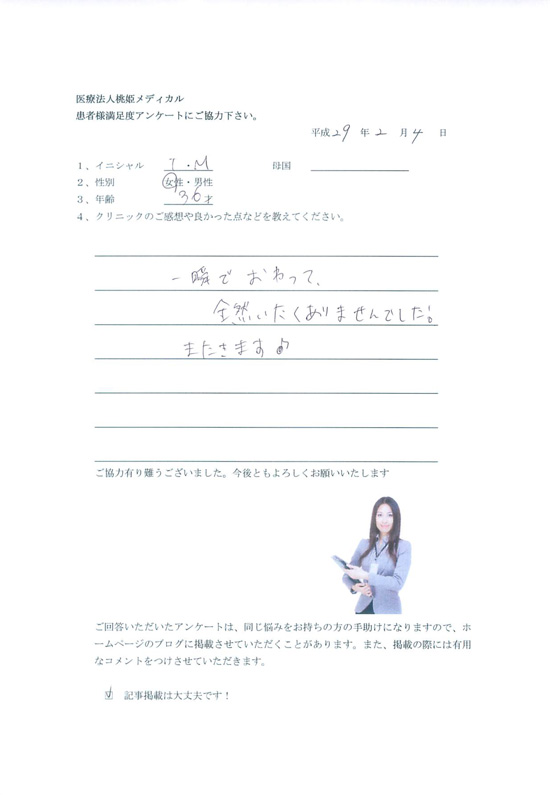 医療法人桃姫メディカル
患者様満足度アンケートにご協力下さい。
平成 29 年 2 月 4 日
1、イニシャル I・M 母国
2、性別 女性・男性
3、年齢 36才
4、クリニックのご感想や良かった点などを教えてください。
一瞬で おわって、
全然いたくありませんでした!。
またきます♪
ご協力有り難うございました。今後ともよろしくお願いいたします
ご回答いただいたアンケートは、同じ悩みをお持ちの方の手助けになりますので、ホ
ームページのブログに掲載させていただくことがあります。また、掲載の際には有用
なコメントをつけさせていただきます。
☑ 記事掲載は大丈夫です!